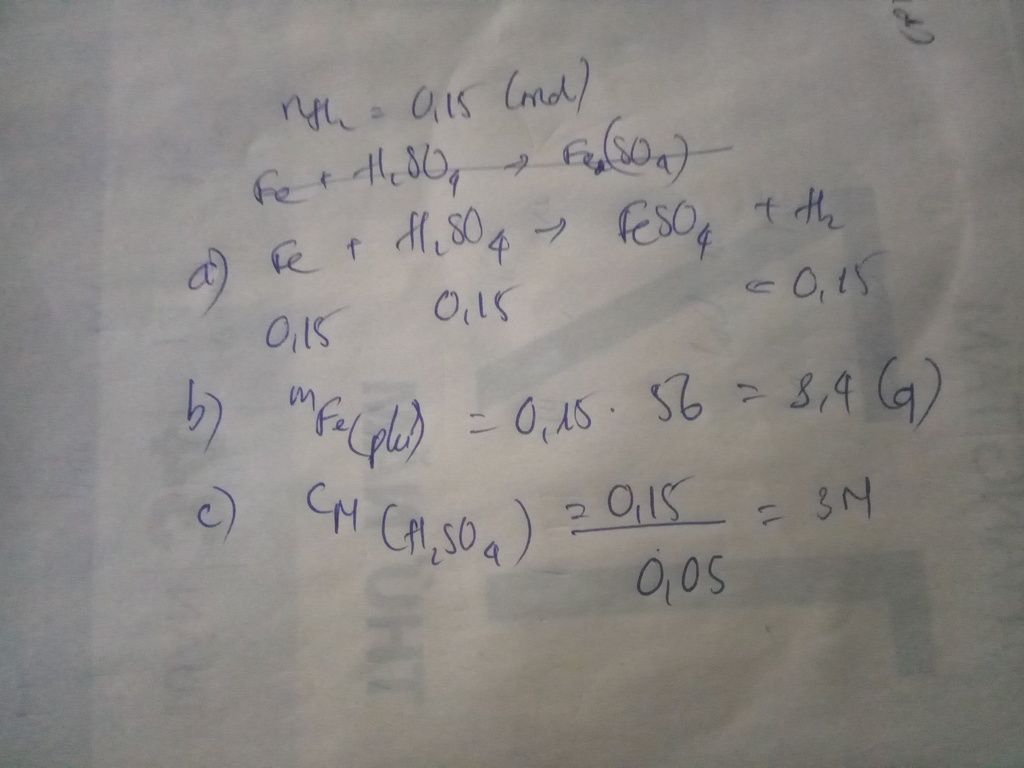 nH₂ = 0,15 (mol)
Fe + H₂SO₄ → Fe₂(SO₄)
a) Fe + H₂SO₄ → FeSO₄ + H₂
0,15 0,15 = 0,15
b) mFe(pư) = 0,15 . 56 = 8,4 (g)
c) CM (H₂SO₄) = 0,15 / 0,05 = 3M